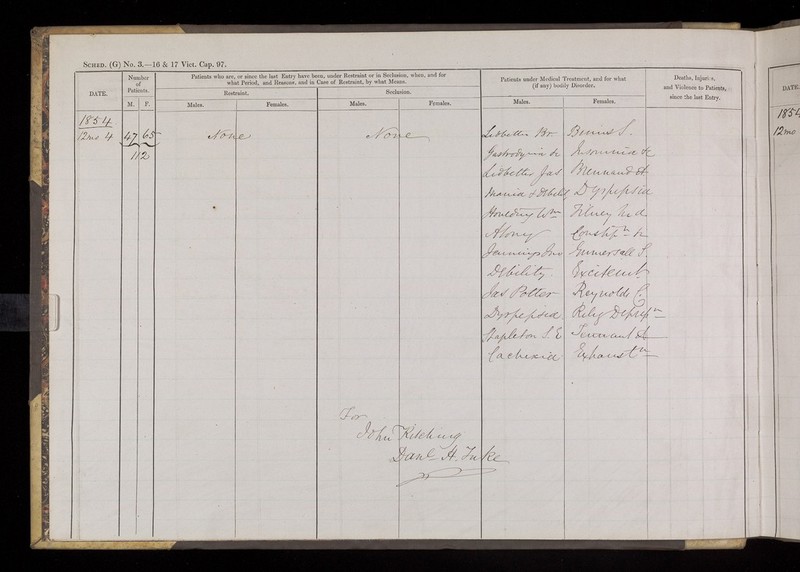 SCHED. (G) No. 3.—16 & 17 Vict. Cap. 97.
DATE.
Number of Patients.
M. F.
Patients who are, or since the last Entry have been, under Restraint or in Seclusion, when, and for
what Period, and Reasons, and in Case of Restraint, by what Means.
Restraint.
Seclusion.
Males. Females. Males. Females.
Patients under Medical Treatment, and for what
(if any) bodily Disorder.
Males. Females.
Deaths, Injuries,
and Violence to Patients,
since the last Entry.
DATE.
1854
12mo 4 47 65 None None
112
Ledbetter
Gastrodynia &c Insomnia &c
Ledbetter Jas Mennand
Mania & Debility Dyspepsia
Houlding Wm
Constipn
Jennings Jno Inmersall S.
Debility. Excitemt
Jas Potter Reynolds C.
Dyspepsia Relig Depressn
Stapleton J. E Tennant
Cachexia Exhaustn
For
John Kitching
Danl H. Tuke
1854
12mo